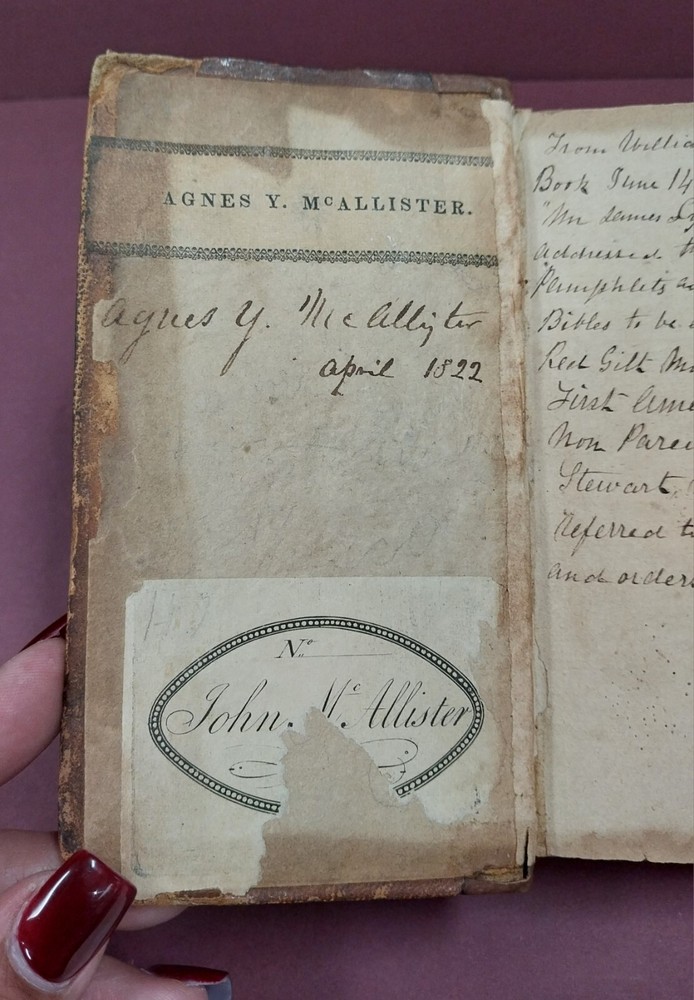 AGNES Y. McALLISTER.
Agnes Y. McAllister
April 1822
No.
John McAllister
From Willia
Book June 14
"Mr James
addressed
Pamphlets
Bibles to be
Red Gilt
First Ame
Non Parei
Stewart,
Referred t
and orders